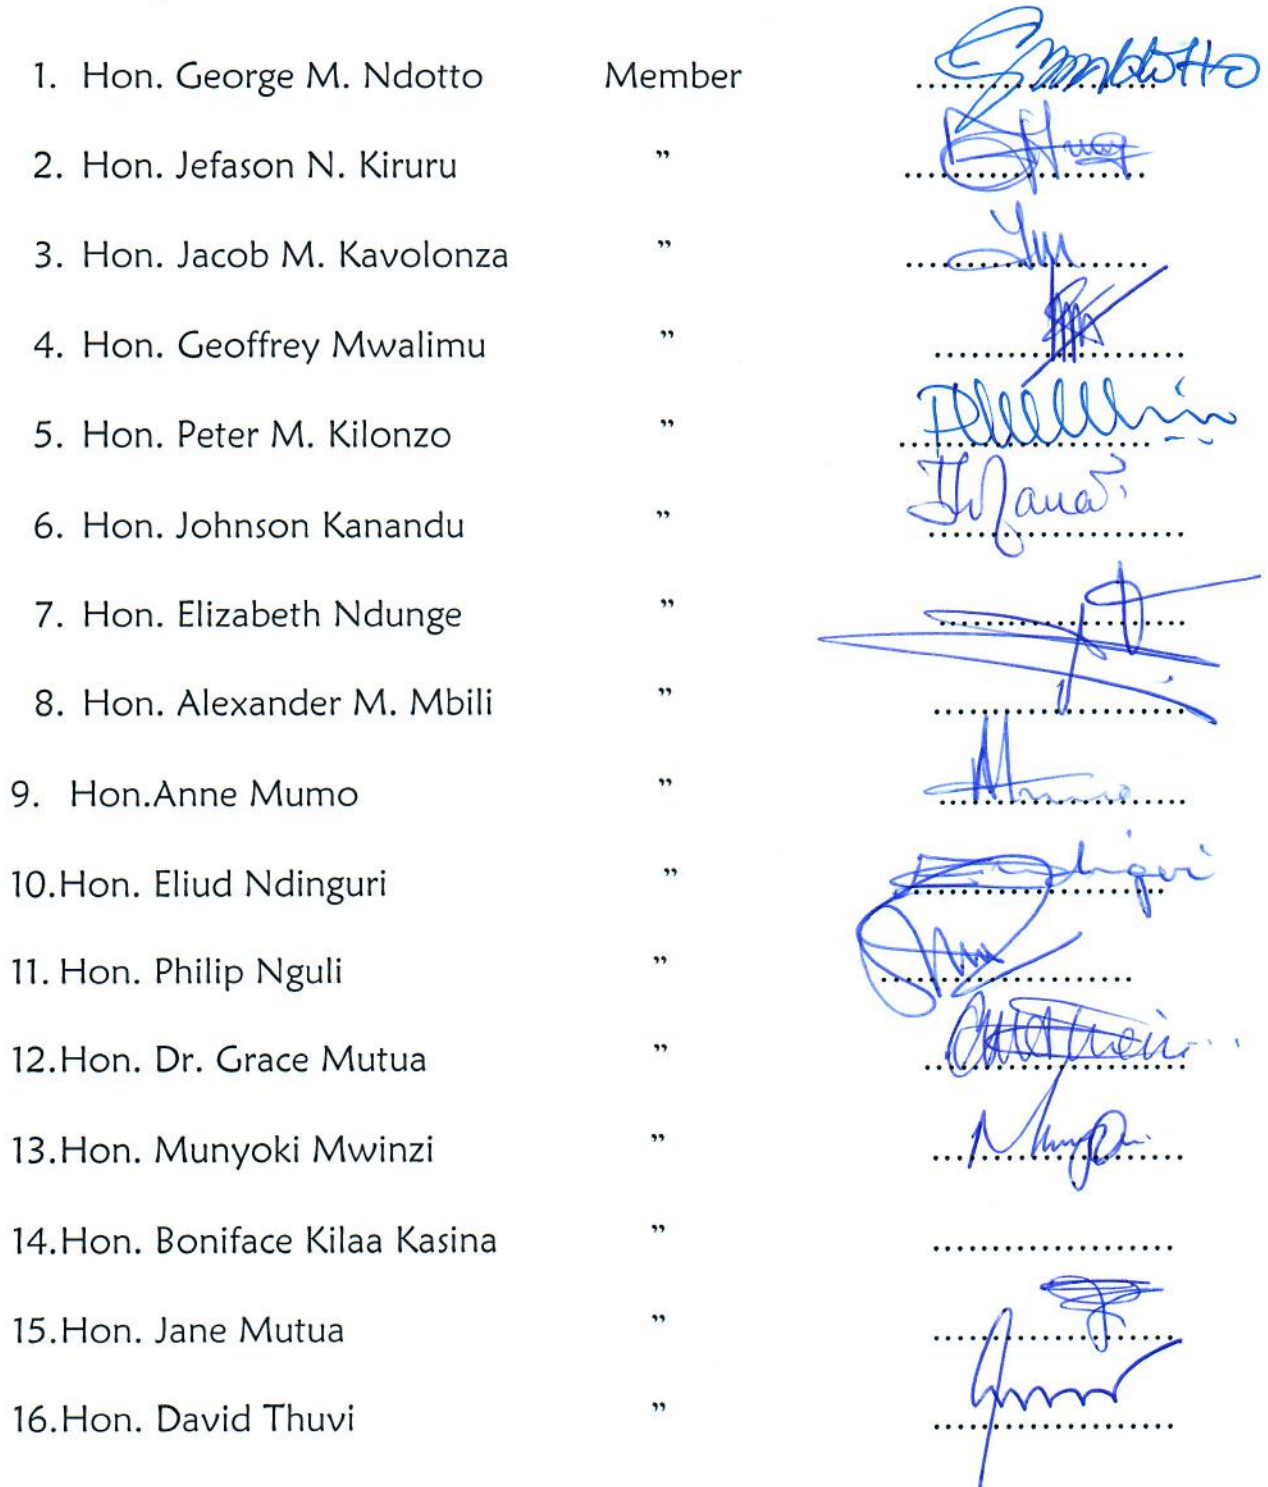 1. Hon. George M. Ndotto Member ....................
2. Hon. Jefason N. Kiruru ” ....................
3. Hon. Jacob M. Kavolonza ” ....................
4. Hon. Geoffrey Mwalimu ” ....................
5. Hon. Peter M. Kilonzo ” ....................
6. Hon. Johnson Kanandu ” ....................
7. Hon. Elizabeth Ndunge ” ....................
8. Hon. Alexander M. Mbili ” ....................
9. Hon.Anne Mumo ” ....................
10.Hon. Eliud Ndinguri ” ....................
11. Hon. Philip Nguli ” ....................
12.Hon. Dr. Grace Mutua ” ....................
13.Hon. Munyoki Mwinzi ” ....................
14.Hon. Boniface Kilaa Kasina ” ....................
15.Hon. Jane Mutua ” ....................
16.Hon. David Thuvi ” ....................